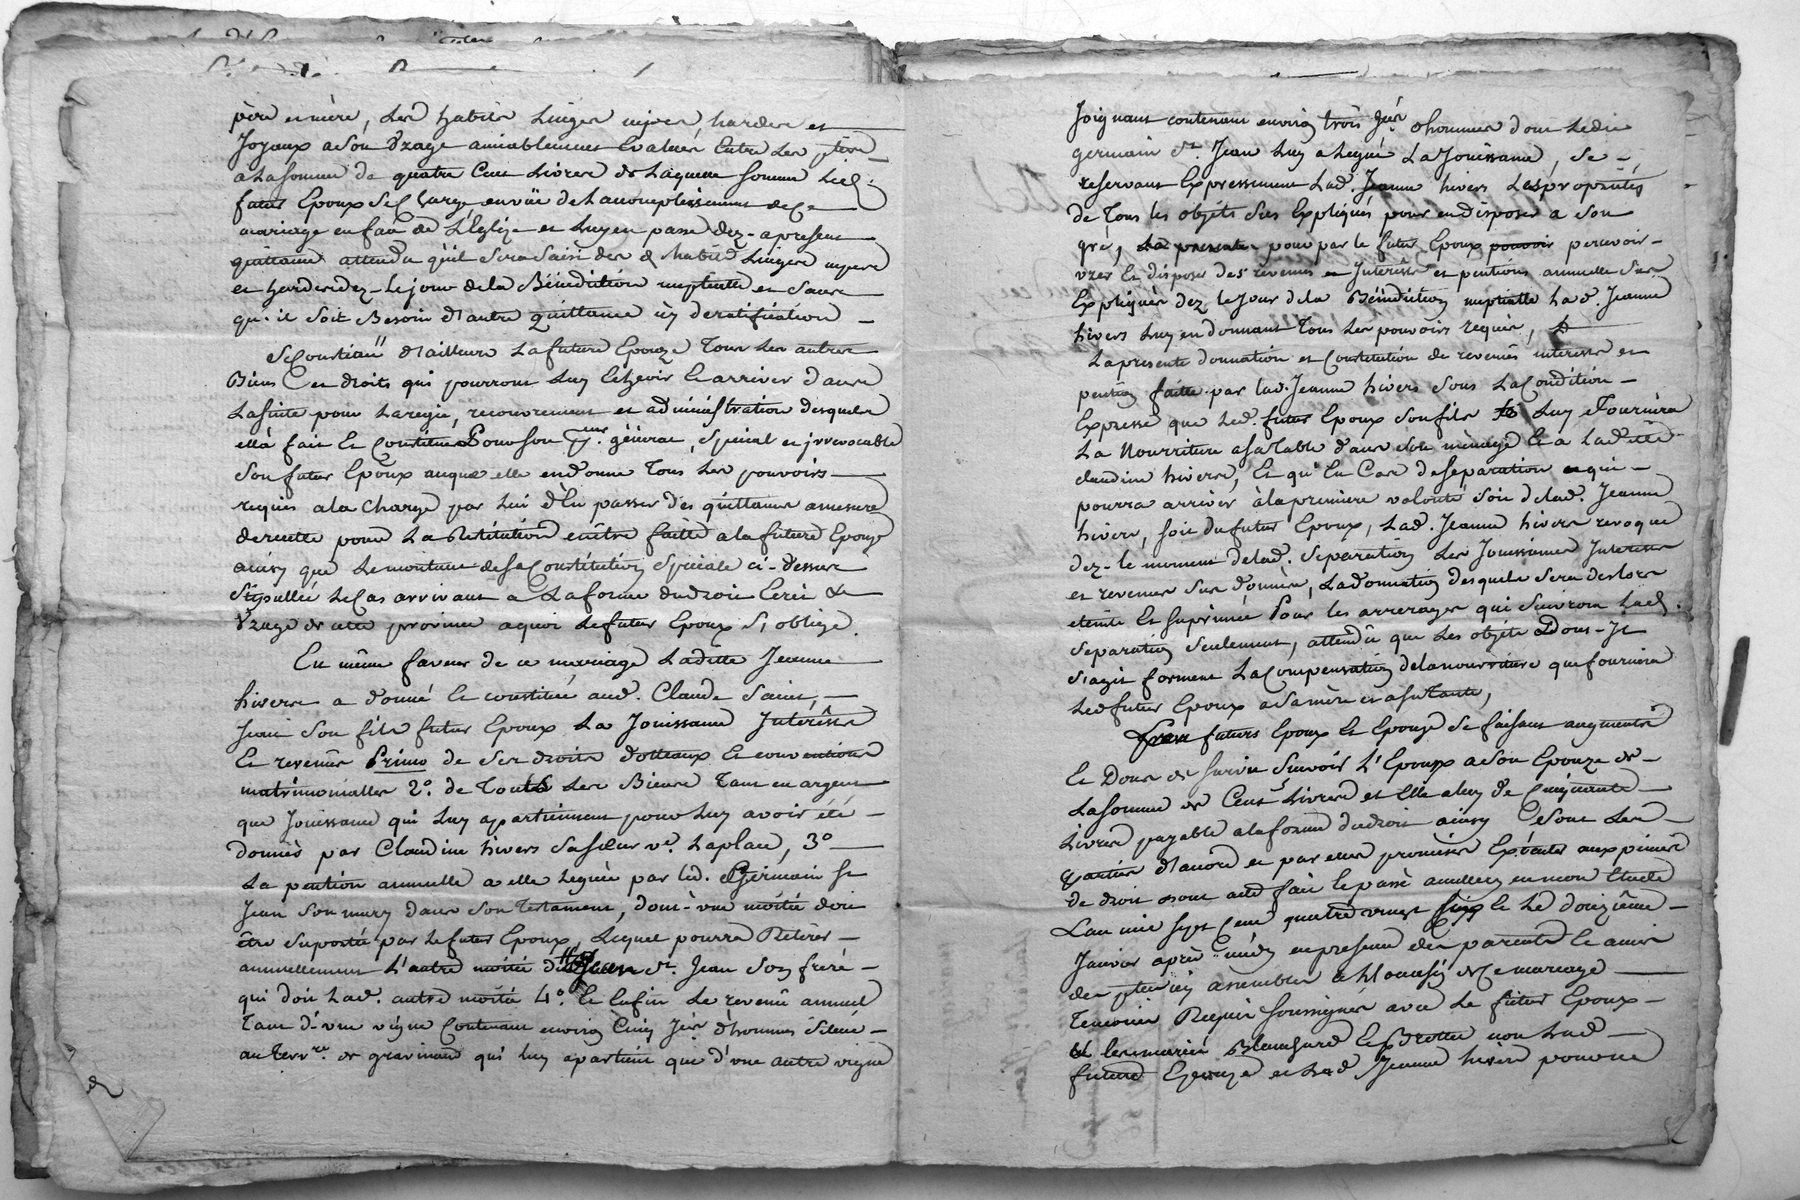 père et mère, Les habits Linges nipes hardes et
Joyaux a son Uzage amiablement Evalués Entre Les ptíes
a La somme de quatre Cent Livres de Laquelle somme Led.
futur Epoux se Charge en vüe de L'accomplissement de Ce
mariage en face de L'Eglize et Luy en passe dez-apresent
quittance attendu qu'il sera saisi des d. habits Linges nipes
et hardes dez-le jour de la Bénédiction nuptialle et sans
qu'il soit Besoin d'autre quittance ny de ratification
Se Constitue d'ailleurs La future Epouze Tous Les autres
Biens et droits qui pourront Luy Echeoir Et arriver dans
La suite pour La regie, recouvrement et administration desquels
ella fait Et Constitue Pour son Pr. général, spécial et jrrevocable
son futur Epoux auquel elle en donne Tous Les pouvoirs
requis a la Charge par Lui d'En passer des quittances amesure
de recette pour La Restitution en être faitte a la future Epouze
ainsy que Le montant de sa Constitution spéciale ci-dessus
stipullée Le Cas arrivant a La forme du droit Ecrit &
Uzage de cette province a quoi Le futur Epoux s'oblige.
En même faveur de ce mariage Laditte Jeanne
hivers a donné Et constitué aud. Claude Saint,
Jean son fils futur Epoux La Jouissance Intérêsts
Et revenûs Primo de ses droits dottaux Et conventions
matrimonialles 2°. de Touts Les Biens Tant en argent
que Jouissance qui Luy apartiennent pour Luy avoir été
donnés par Claudine hivers sa sœur ve. Laplace, 3°
La pention annuelle a elle Leguée par led. Germain St
Jean son mary dans son Testament, dont-une moitié doit
être suportée par Le futur Epoux, Lequel pourra Retirer
annuellement L'autre moitié du St. Jean son frere
qui doit Lad. autre moitié 4°. Et Enfin Le revenû annuel
Tant d'une vigne Contenant environ Cinq Jées d'hommes située
au Terrre. de gravinand qui luy apartient que d'une autre vigne
Joignant contenant environ trois Jées d'hommes dont Ledit
germain St. Jean Luy a Legué La Jouissance, se
reservant Expressement Lad. Jeanne hivers Les propriétés
de Tous les objéts sus Expliqués pour en disposer a son
gré, La presente pour par le futur Epoux pouvoir percevoir
uzer Et disposer des revenus et Intérêsts et pentions annuelle sus
Expliqués dez le Jour de la Bénédiction nuptialle Lad. Jeanne
hivers Luy en donnant Tous Les pouvoirs requis,
La presente donnation et Constitution de revenûs interests et
pention faitte par lad. Jeanne hivers sous La Condition
Expresse que Led. futur Epoux son fils Luy Fournira
La Nourriture a sa Table dans son ménage Et a Laditte
claudine hivers, Et qu'En Cas de separation ce qui
pourra arriver à la premiere volonté soit de lad. Jeanne
hivers, soit du futur Epoux, Lad. Jeanne hivers revoque
dez-le moment de lad. separation Les Jouissances Interests
et revenus sus donnés, La donnation desquels sera deslors
eteinte Et suprimée Pour les arrerages qui suivront Lad.
separation seulement, attendû que Les objéts Dont-Il
s'agit forment La Compensation de la nourriture que fournira
Led futur Epoux a sa mère et a sa Tante,
futurs Epoux Et Epouze se faisant augments
Et Dons de survie sçavoir L'Epoux a son Epouze de
La somme de Cent Livres et Elle a luy de Cinquante
Livres payable a la forme du droit ainsy Ce sont Les
parties d'accord et par elles promises Exécuter aux peines
de droit dont acte fait Et passé a en mon Etude
L'an mil sept Cent quatre vingt six Et Le douzième
Janvier après midy en presence des parents Et amis
des pties icy assemblés a L'occasion de Ce mariage
Temoins Requis soussignés avec Le futur Epoux
et les mariés Blanchard Et Drotte non Lad
future Epouze et Lad Jeanne hivers pour ne